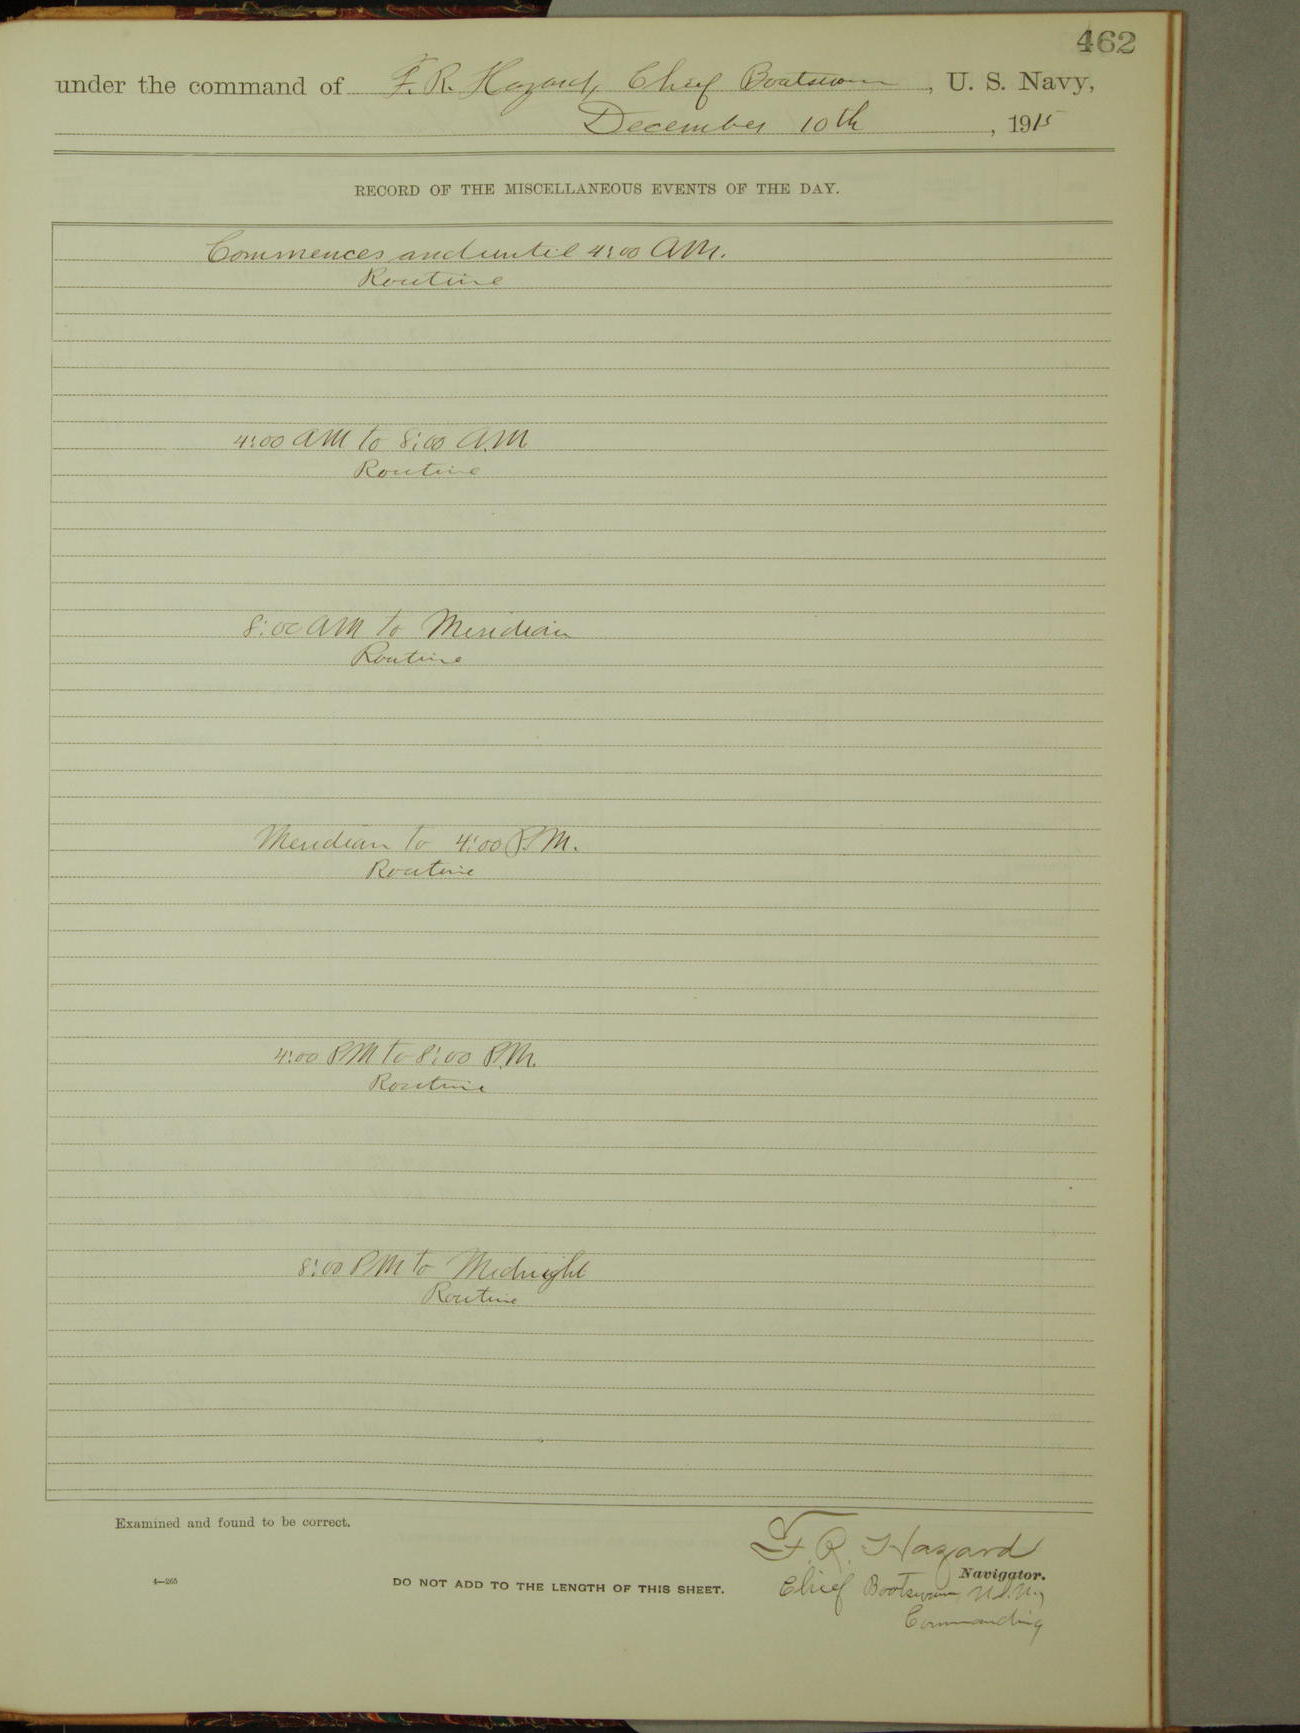 462
under the command of F. R. Hazard, Chief Boatswain, U. S. Navy,
December 10th, 1915
RECORD OF THE MISCELLANEOUS EVENTS OF THE DAY.
Commences and until 4:00 A.M.
Routine
4:00 AM to 8:00 A.M.
Routine
8:00 AM to Meridian
Routine
Meridian to 4:00 P.M.
Routine
4:00 PM to 8:00 P.M.
Routine
8:00 PM to Midnight
Routine
Examined and found to be correct.
F. R. Hazard
Navigator.
4—265
DO NOT ADD TO THE LENGTH OF THIS SHEET.
Chief Boatswain, U.S.N.,
Commanding